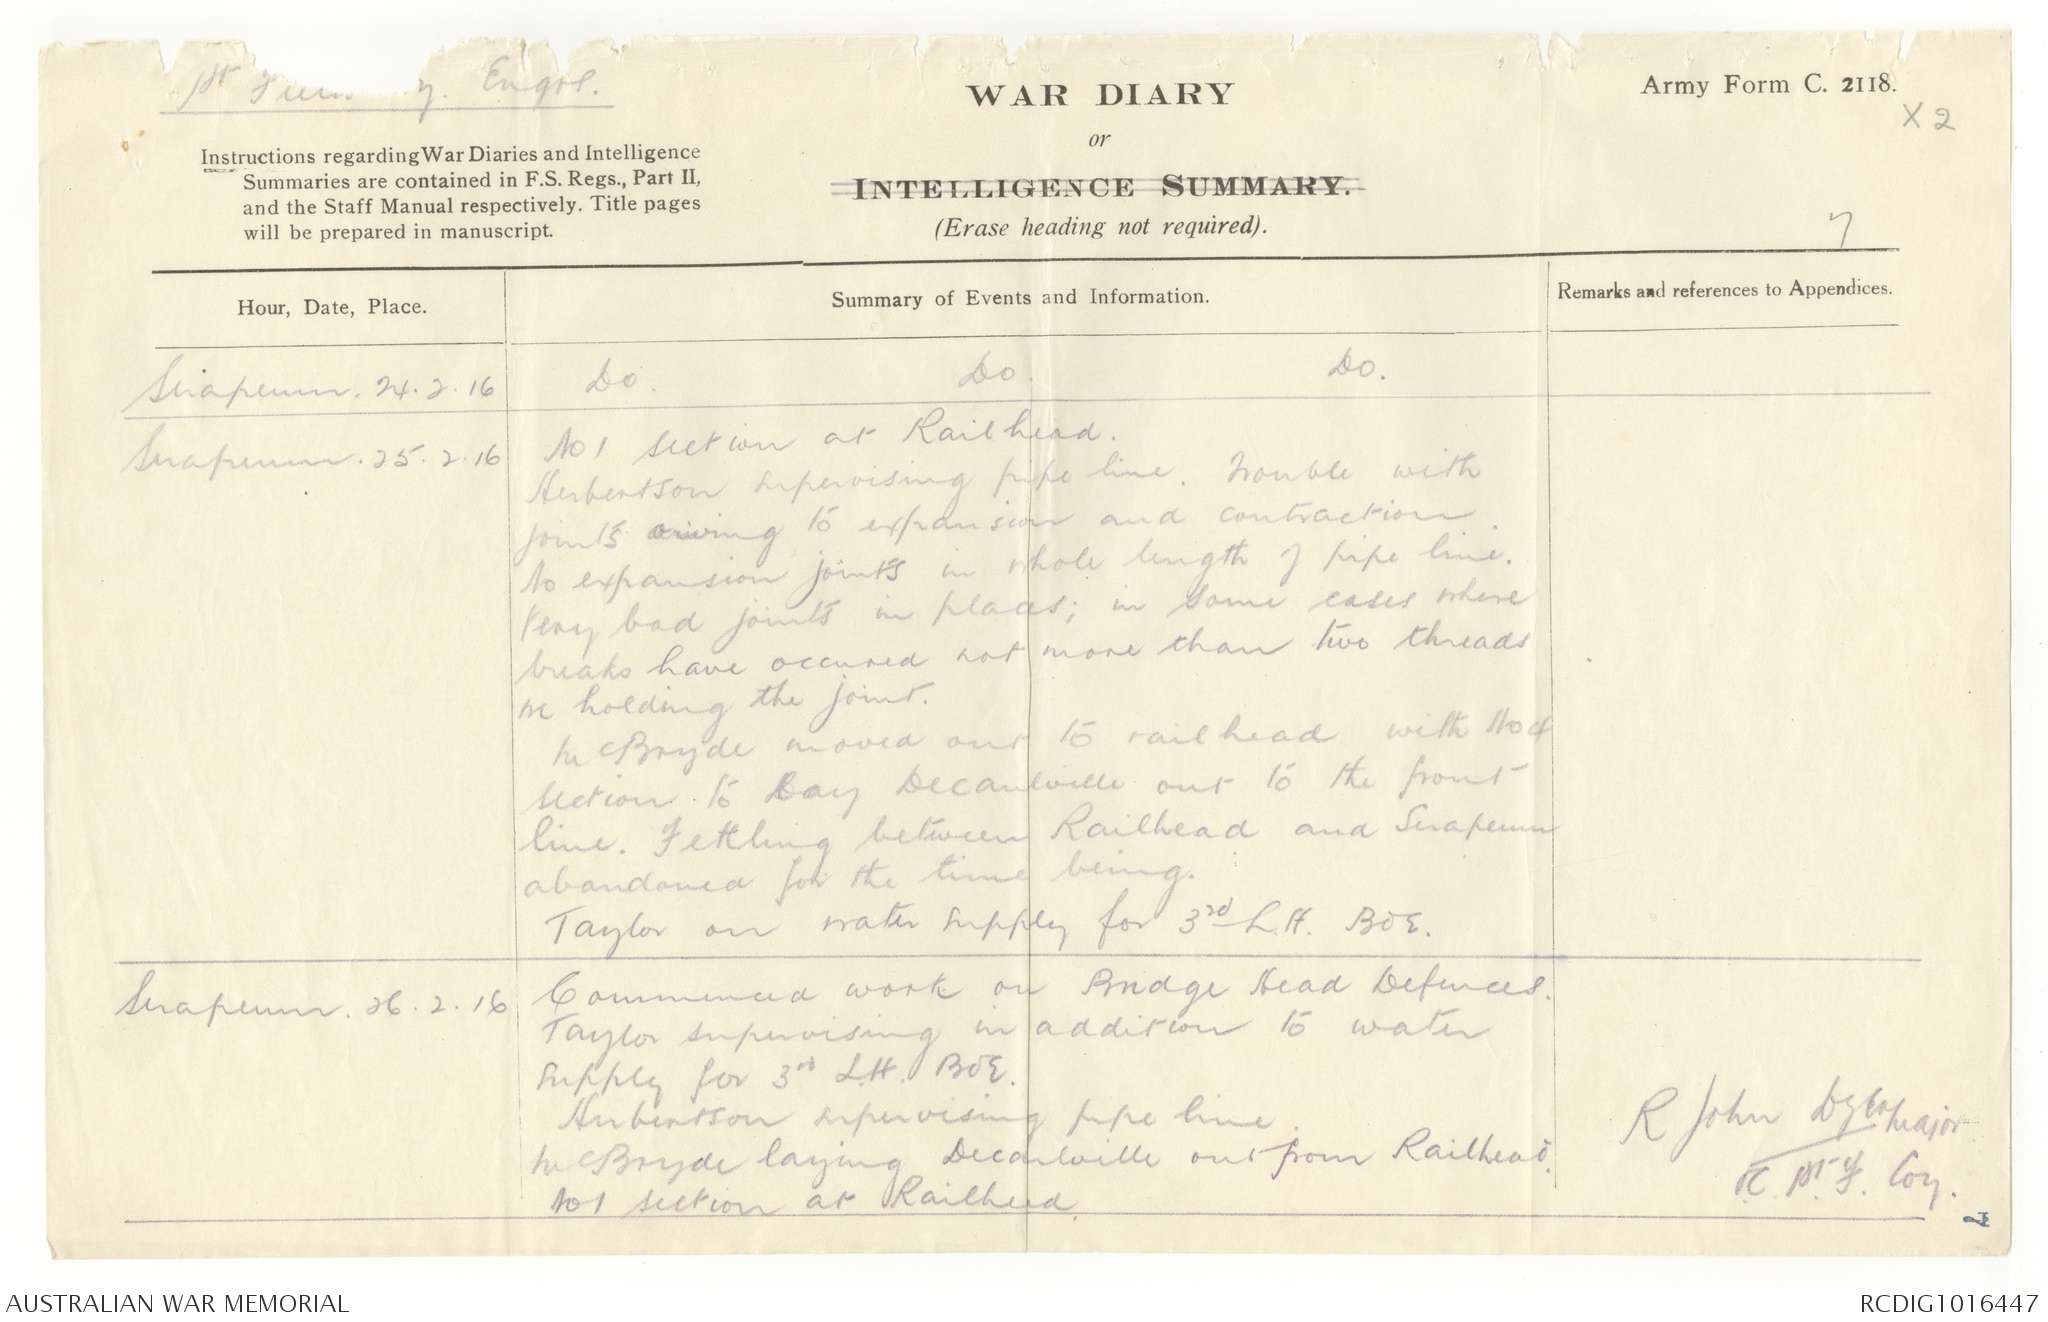 1st Engrs.
WAR DIARY
or
INTELLIGENCE SUMMARY.
(Erase heading not required).
Army Form C. 2118.
X 2
7
Instructions regarding War Diaries and Intelligence
Summaries are contained in F.S. Regs., Part II,
and the Staff Manual respectively. Title pages
will be prepared in manuscript.
Hour, Date, Place.
Summary of Events and Information.
Remarks and references to Appendices.
Serapeum. 24.2.16 Do. Do. Do.
Serapeum. 25.2.16 No 1 section at Railhead.
Herbertson supervising pipe line. Trouble with
joints owing to expansion and contraction.
No expansion joints in whole length of pipe line.
Very bad joints in places; in some cases where
breaks have occured not more than two threads
holding the joint.
McBryde moved out to railhead with No 4
section to Lay Decauville out to the front
line. Fettling between Railhead and Serapeum
abandoned for the time being.
Taylor on water supply for 3rd L.H. BDE.
Serapeum. 26.2.16 Commenced work on Bridge Head Defences.
Taylor supervising in addition to water
supply for 3rd L.H. BDE.
Herbertson supervising pipe line.
McBryde laying Decauville out from Railhead.
No 1 section at Railhead.
R John Dyer Major
1st F. Coy.
AUSTRALIAN WAR MEMORIAL
RCDIG1016447